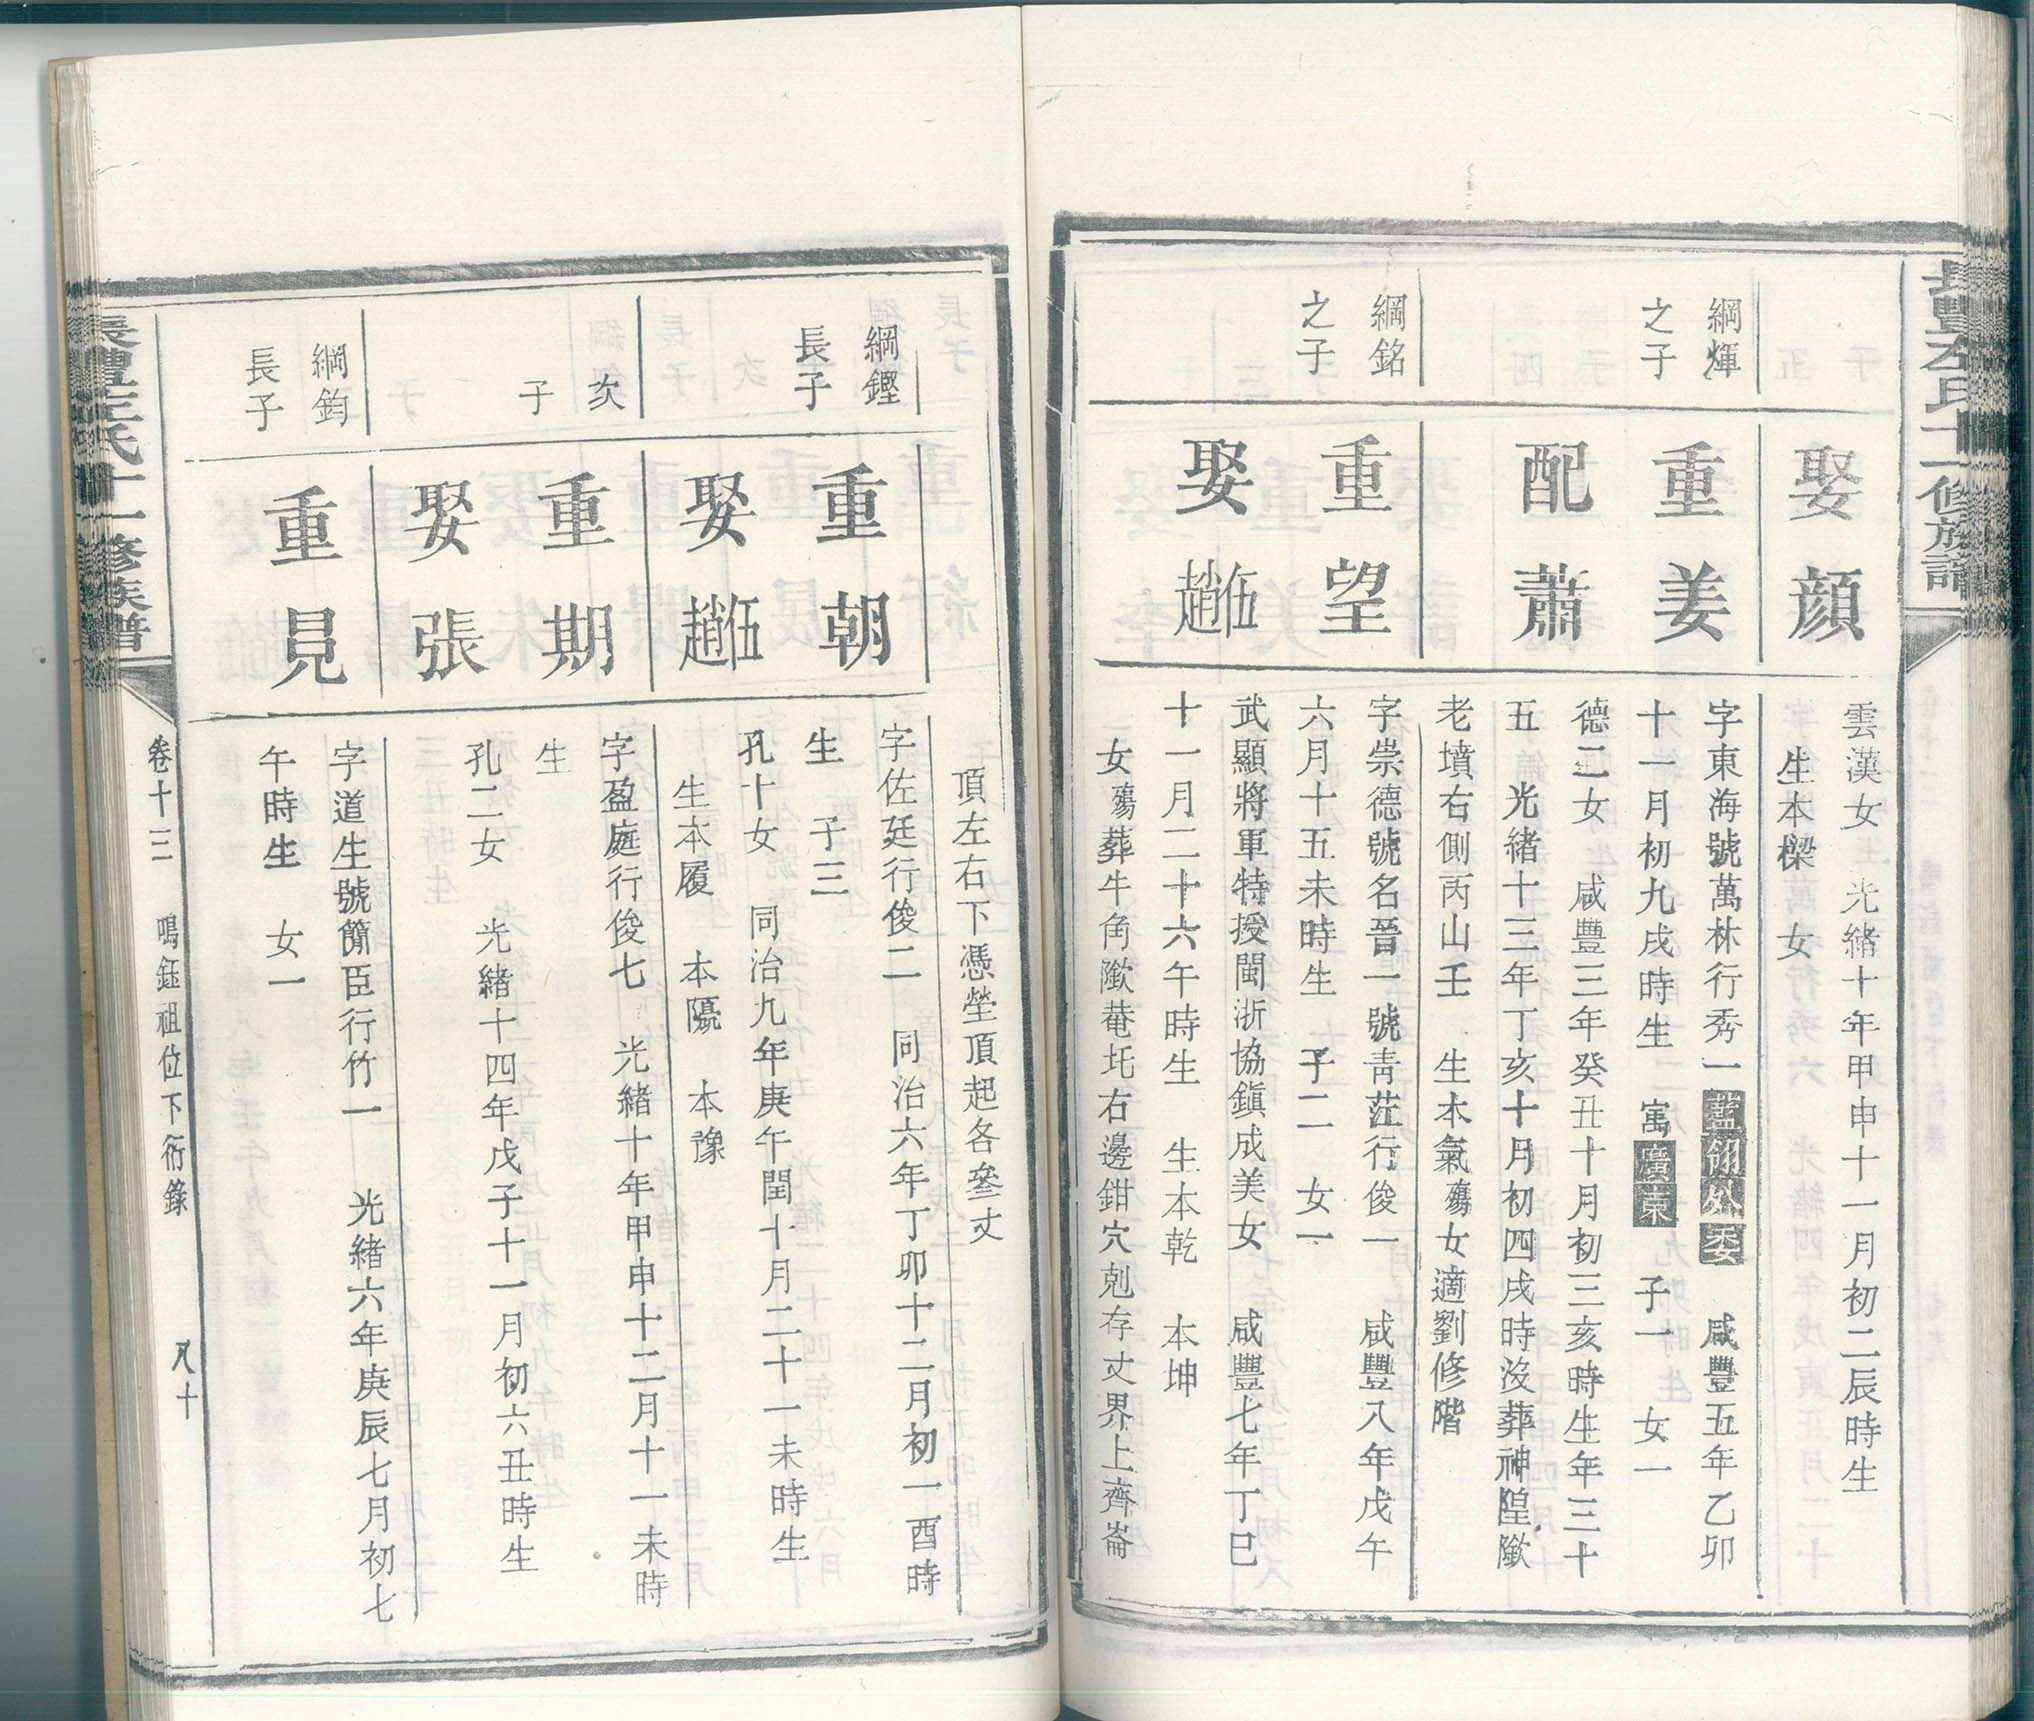 長豐左氏十一修族譜
娶顏
雲漢女 光緒十年甲申十一月初二辰時生
生本樑 女
綱煇
之子
重姜
字東海號萬林行秀一藍翎外委 咸豐五年乙卯
十一月初九戌時生 寓廣東 子一 女一
配蕭
德二女 咸豐三年癸丑十月初三亥時生年三十
五 光緒十三年丁亥十月初四戌時沒葬神隍
老墳右側丙山壬 生本氣殤女適劉修階
綱銘
之子
重望
字崇德號名晉一號青茳行俊一 咸豐八年戊午
六月十五未時生 子二 女一
娶伍趙
武顯將軍特授閩浙協鎮成美女 咸豐七年丁巳
十一月二十六午時生 生本乾 本坤
女殤葬牛角菴圫右邊鉗穴剋存丈界上齊崙
頂左右下憑塋頂起各叄丈
綱鏗
長子
重朝
字佐廷行俊二 同治六年丁卯十二月初一酉時
生 子三
娶伍趙
孔十女 同治九年庚午閏十月二十一未時生
生本履 本隲 本豫
次
子
重期
字盈庭行俊七 光緒十年甲申十二月十一未時
生
娶張
孔二女 光緒十四年戊子十一月初六丑時生
綱鈞
長子
重見
字道生號簡臣行竹一 光緒六年庚辰七月初七
午時生 女一
長豐左氏十一修族譜 卷十三 鳴鈺祖位下衍錄 八十